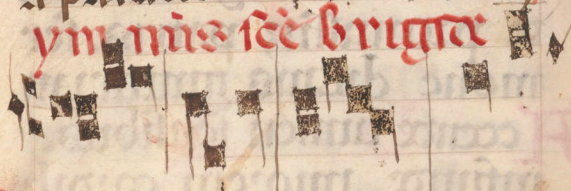 ymnus sce brigitte